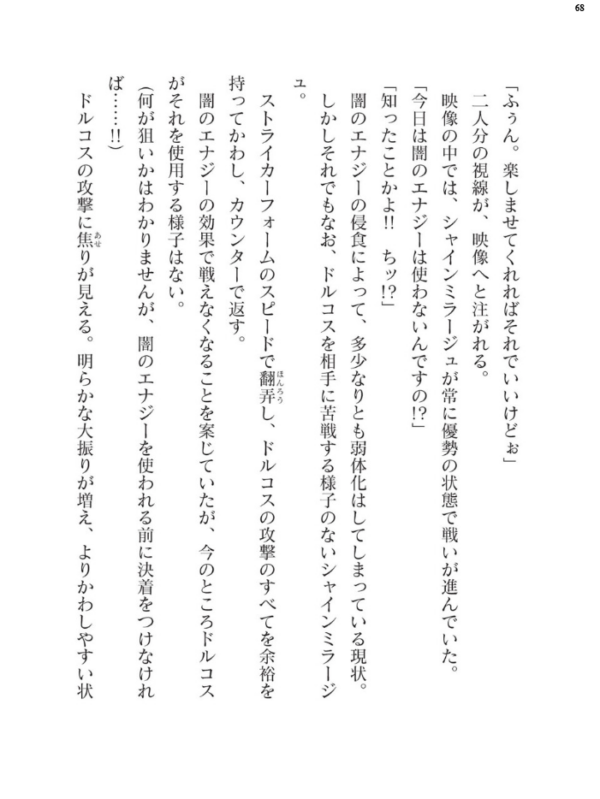 68
「ふぅん。楽しませてくれればそれでいいけどぉ」
二人分の視線が、映像へと注がれる。
映像の中では、シャインミラージュが常に優勢の状態で戦いが進んでいた。
「今日は闇のエナジーは使わないんですの!?」
「知ったことかよ!!　ちッ!?」
闇のエナジーの侵食によって、多少なりとも弱体化はしてしまっている現状。
しかしそれでもなお、ドルコスを相手に苦戦する様子のないシャインミラージ
ュ。
ストライカーフォームのスピードで翻弄し、ドルコスの攻撃のすべてを余裕を
持ってかわし、カウンターで返す。
闇のエナジーの効果で戦えなくなることを案じていたが、今のところドルコス
がそれを使用する様子はない。
（何が狙いかはわかりませんが、闇のエナジーを使われる前に決着をつけなけれ
ば……!!）
ドルコスの攻撃に焦りが見える。明らかな大振りが増え、よりかわしやすい状